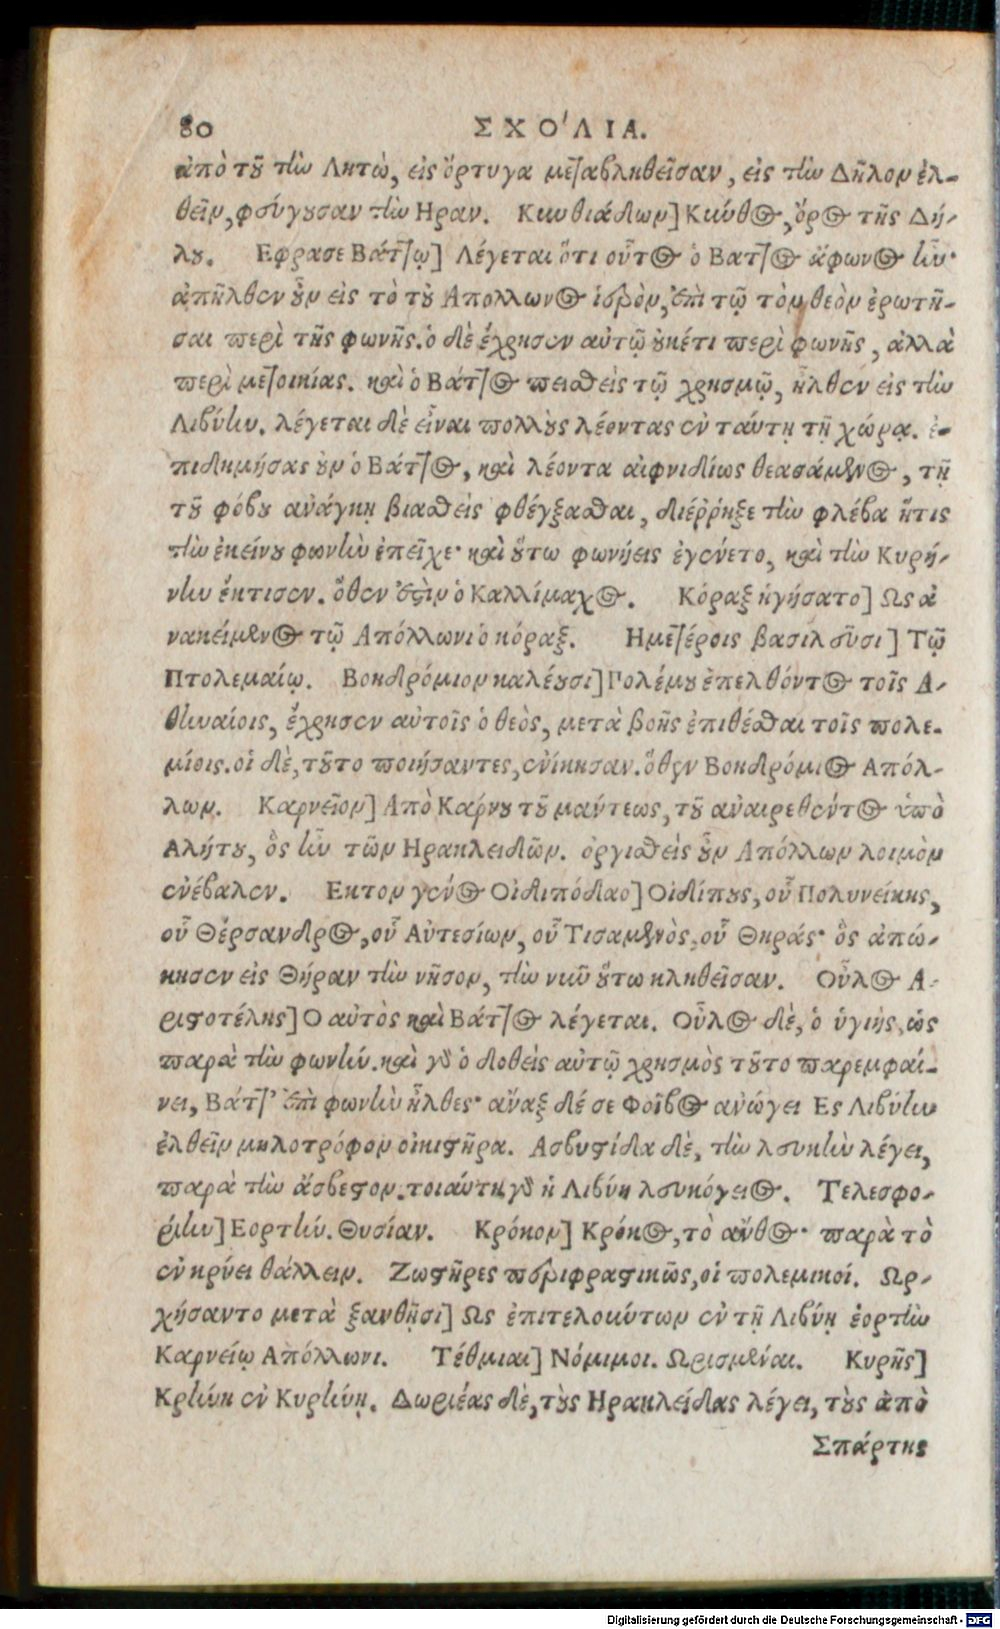 80 ΣΧΟ'ΛΙΑ.
ἀπὸ τοῦ τὴν Λητὼ, εἰς ὄρτυγα μεταβληθεῖσαν, εἰς τὴν Δῆλον ἐλ-
θεῖν, φεύγουσαν τὴν Ηραν. Κυνθιάδων] Κύνθος, ὄρος τῆς Δή-
λου. Εφρασε Βάττῳ] Λέγεται ὅτι οὗτος ὁ Βαττος ἄφωνος ἦν·
ἀπῆλθεν οὖν εἰς τὸ τοῦ Απολλωνος ἱερὸν, ἐπὶ τῷ τὸν θεὸν ἐρωτῆ-
σαι περὶ τῆς φωνῆς. ὁ δὲ ἔχρησεν αὐτῷ οὐκέτι περὶ φωνῆς, ἀλλὰ
περὶ μετοικίας. καὶ ὁ Βάττος πεισθεὶς τῷ χρησμῷ, ἦλθεν εἰς τὴν
Λιβύην. λέγεται δὲ εἶναι πολλοὺς λέοντας ἐν ταύτῃ τῇ χώρᾳ. ἐ-
πιδημήσας οὖν ὁ Βάττος, καὶ λέοντα αἰφνιδίως θεασάμενος, τῇ
τοῦ φόβου ἀνάγκῃ βιασθεὶς φθέγξασθαι, διέῤῥηξε τὴν φλέβα ἥτις
τὴν ἐκείνου φωνὴν ἐπεῖχε· καὶ οὕτω φωνήεις ἐγένετο, καὶ τὴν Κυρή-
νην ἔκτισεν. ὅθεν ἐστὶν ὁ Καλλίμαχος. Κόραξ ἡγήσατο] Ως ἀ
νακείμενος τῷ Απόλλωνι ὁ κόραξ. Ημετέροις βασιλεῦσι] Τῷ
Πτολεμαίῳ. Βοηδρόμιον καλέουσι] Πολέμου ἐπελθόντος τοῖς Α-
θηναίοις, ἔχρησεν αὐτοῖς ὁ θεὸς, μετὰ βοῆς ἐπιθέσθαι τοῖς πολε-
μίοις. οἱ δὲ, τοῦτο ποιήσαντες, ἐνίκησαν. ὅθεν Βοηδρόμιος Απόλ-
λων. Καρνεῖον] Απὸ Κάρνου τοῦ μαντεως, τοῦ ἀναιρεθέντος ὑπὸ
Αλήτου, ὃς ἦν τῶν Ηρακλειδῶν. ὀργισθεὶς οὖν Απόλλων λοιμὸν
ἐνέβαλεν. Εκτον γένος Οἰδιπόδαο] Οἰδίπους, οὗ Πολυνείκης,
οὗ Θέρσανδρος, οὗ Αὐτεσίων, οὗ Τισαμενὸς, οὗ Θηράς· ὃς ἀπώ-
κησεν εἰς Θήραν τὴν νῆσον, τὴν νῦν οὕτω κληθεῖσαν. Οὖλος Α-
ριστοτέλης] Ο αὐτὸς καὶ Βάττος λέγεται. Οὖλος δὲ, ὁ ὑγιής, ὡς
παρὰ τὴν φωνήν. καὶ γὰρ ὁ δοθεὶς αὐτῷ χρησμὸς τοῦτο παρεμφαί-
νει, Βάττ' ἐπὶ φωνὴν ἦλθες· ἄναξ δέ σε Φοῖβος ἀνώγει Ες Λιβύην
ἐλθεῖν μηλοτρόφον οἰκιστῆρα. Ασβυστίδα δὲ, τὴν λευκὴν λέγει,
παρὰ τὴν ἄσβεστον. τοιαύτη γὰρ ἡ Λιβύη λευκόγειος. Τελεσφο-
ρίην] Εορτήν. Θυσίαν. Κρόκον] Κρόκος, τὸ ἄνθος· παρὰ τὸ
ἐν κρύει θάλλειν. Ζωστῆρες περιφραστικῶς, οἱ πολεμικοί. Ωρ-
χήσαντο μετὰ ξανθῇσι] Ως ἐπιτελουύτων ἐν τῇ Λιβύῃ ἑορτὴν
Καρνείῳ Απόλλωνι. Τέθμιαι] Νόμιμοι. Ωρισμέναι. Κυρῆς]
Κρήνη ἐν Κυρήνῃ. Δωριέας δὲ, τοὺς Ηρακλείδας λέγει, τοὺς ἀπὸ
Σπάρτης
Digitalisierung gefördert durch die Deutsche Forschungsgemeinschaft - DFG